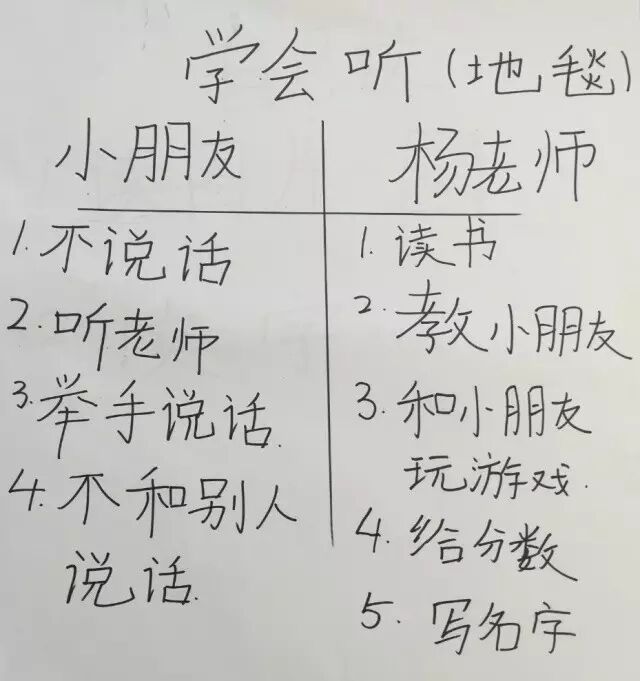 学会听(地毯)
小朋友
1.不说话
2.听老师
3.举手说话.
4.不和别人
说话.
杨老师
1.读书
2.教小朋友
3.和小朋友
玩游戏.
4.给分数
5.写名字